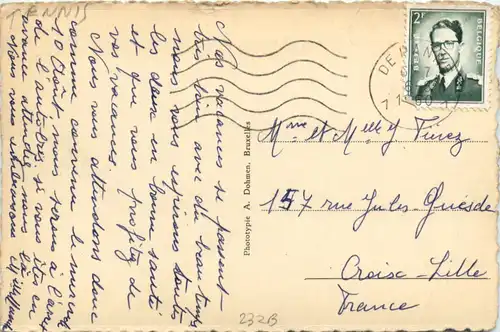 TENNIS
Nos vacances se passent
très bien avec du beau temps
nous vous espérons toutes
les deux en bonne santé
et que vous profitez de
vos vacances.
Nous vous attendons donc
comme convenu le mercredi
10 Août nous serons à l'arrêt
de l'autobus si vous êtes en
avance attendez nous là
Nous vous embrassons
Phototypie A. Dohmen, Bruxelles
2F
BELGIQUE
BELGIE
DE PANNE
Mme et Melle
157 rue Jules-Guesde
Croix-Lille
France
232B